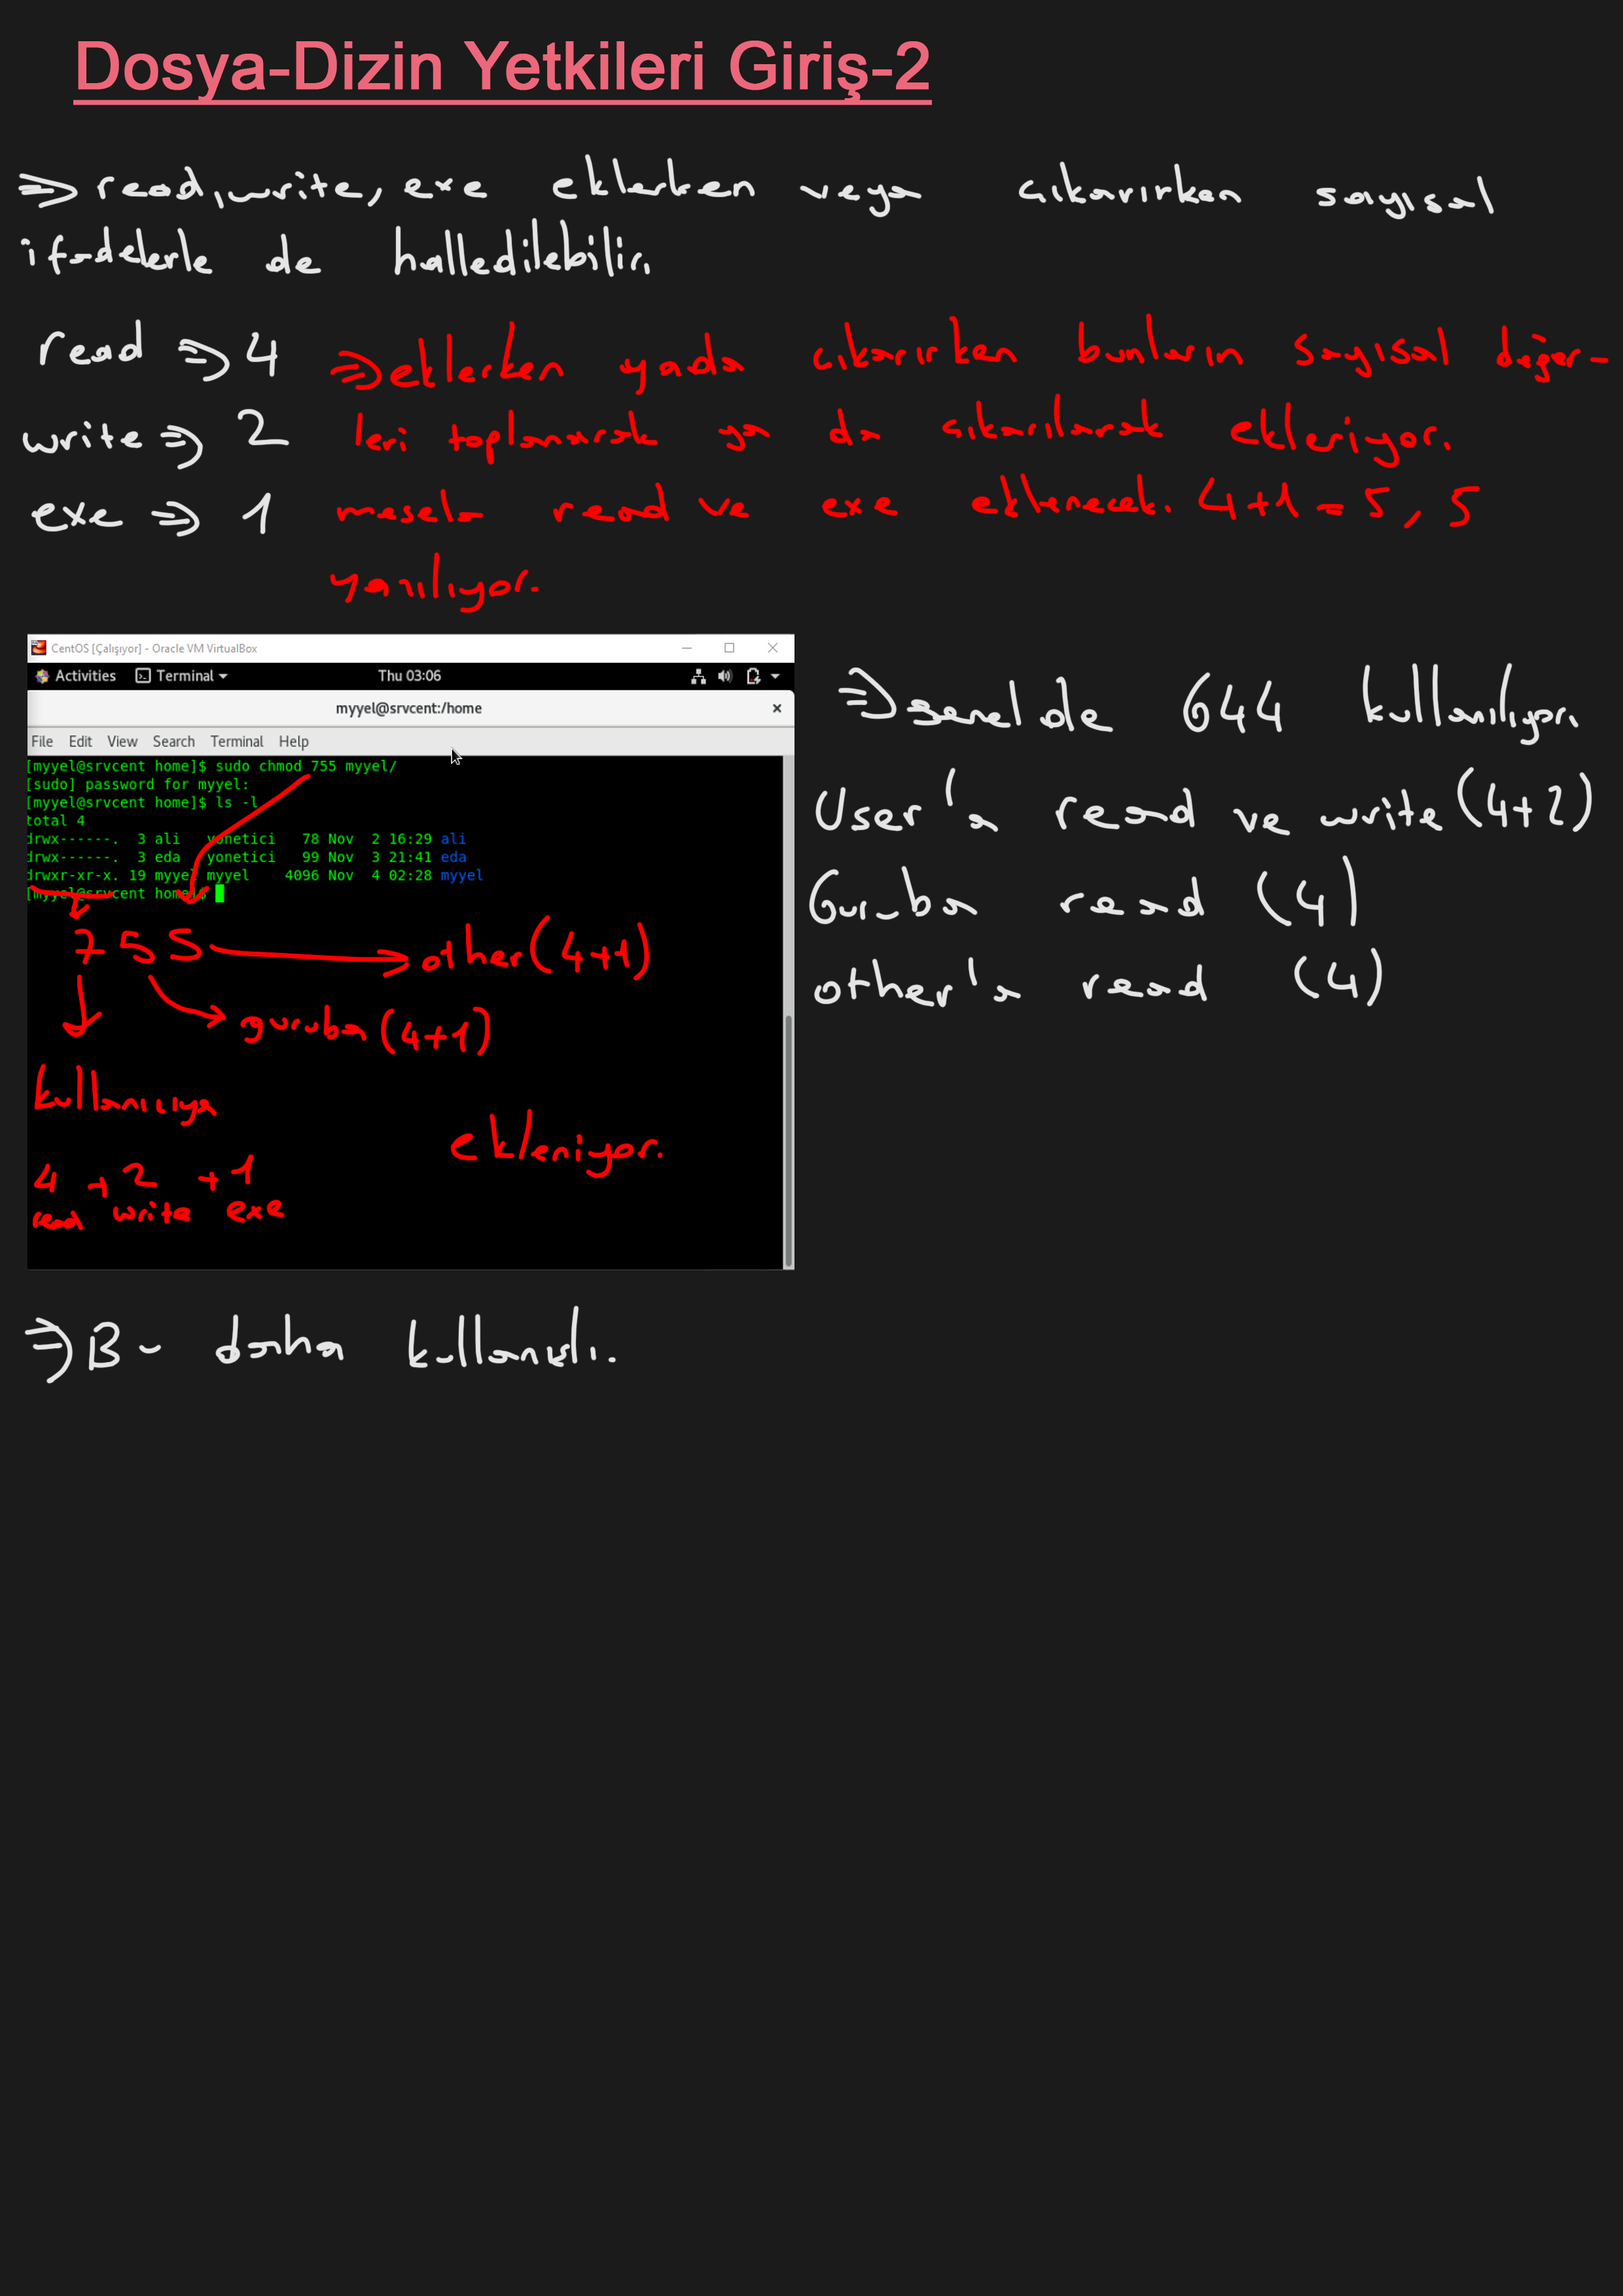 Dosya-Dizin Yetkileri Giriş-2
=> read, write, exe eklerken veya cıkarırken sayısal
ifadelerle de halledilebilir.
read => 4
write => 2
exe => 1
=> eklerken yada cıkarırken bunların sayısal değer-
leri toplanarak ya da cıkarılarak ekleniyor.
mesela read ve exe eklenecek. 4+1=5, 5
yazılıyor.
CentOS [Çalışıyor] - Oracle VM VirtualBox
Activities Terminal Thu 03:06
myyel@srvcent:/home
File Edit View Search Terminal Help
[myyel@srvcent home]$ sudo chmod 755 myyel/
[sudo] password for myyel:
[myyel@srvcent home]$ ls -l
total 4
drwx------. 3 ali yonetici 78 Nov 2 16:29 ali
drwx------. 3 eda yonetici 99 Nov 3 21:41 eda
drwxr-xr-x. 19 myyel myyel 4096 Nov 4 02:28 myyel
[myyel@srvcent home]$
7 5 5 other (4+1)
guruba (4+1)
kullanıcıya
ekleniyor.
4 + 2 + 1
read write exe
=> genelde 644 kullanılıyor.
User'a read ve write (4+2)
Guruba read (4)
other'a read (4)
=> Bu daha kullanışlı.